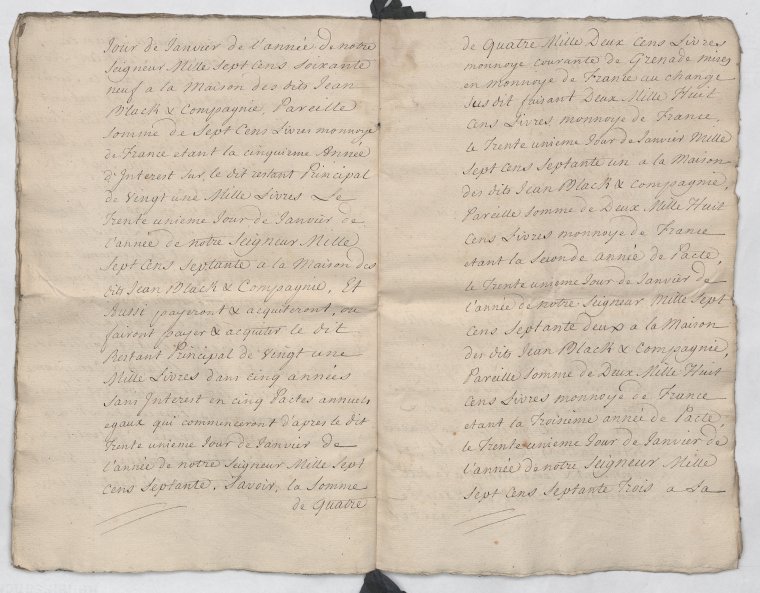 Jour de Janvier de l'année de notre
Seigneur Mille Sept cens soixante
neuf a la Maison des dits Jean
Black & Compagnie, Pareille
Somme de Sept Cens Livres monnoye
de France etant la cinquieme Année
d'Interest sur le dit restant Principal
de Vingt une Mille Livres Le
Trente unieme Jour de Janvier de
l'année de notre Seigneur Mille
Sept Cens Septante a la Maison des
dits Jean Black & Compagnie, Et
Aussi payeront & acquiteront, ou
fairont payer & acquiter le dit
Restant Principal de Vingt une
Mille Livres dans cinq années
Sans Interest en cinq Pactes annuels
egaux qui commenceront d'apres le dit
Trente unieme Jour de Janvier de
l'année de notre Seigneur Mille Sept
Cens Septante, Savoir, la Somme
de Quatre
de Quatre Mille Deux Cens Livres
monnoye courante de Grenade mises
en monnoye de France au change
Sus dit faisant Deux Mille Huit
Cens Livres monnoye de France,
le Trente unieme Jour de Janvier Mille
Sept Cens Septante un a la Maison
des dits Jean Black & Compagnie,
Pareille Somme de Deux Mille Huit
Cens Livres monnoye de France
etant la Seconde année de Pacte,
le Trente unieme Jour de Janvier de
l'année de notre Seigneur Mille Sept
Cens Septante deux a la Maison
des dits Jean Black & Compagnie,
Pareille Somme de Deux Mille Huit
Cens Livres monnoye de France
etant la Troisieme année de Pacte,
le Trente unieme Jour de Janvier de
l'année de notre Seigneur Mille
Sept Cens Septante Trois a La